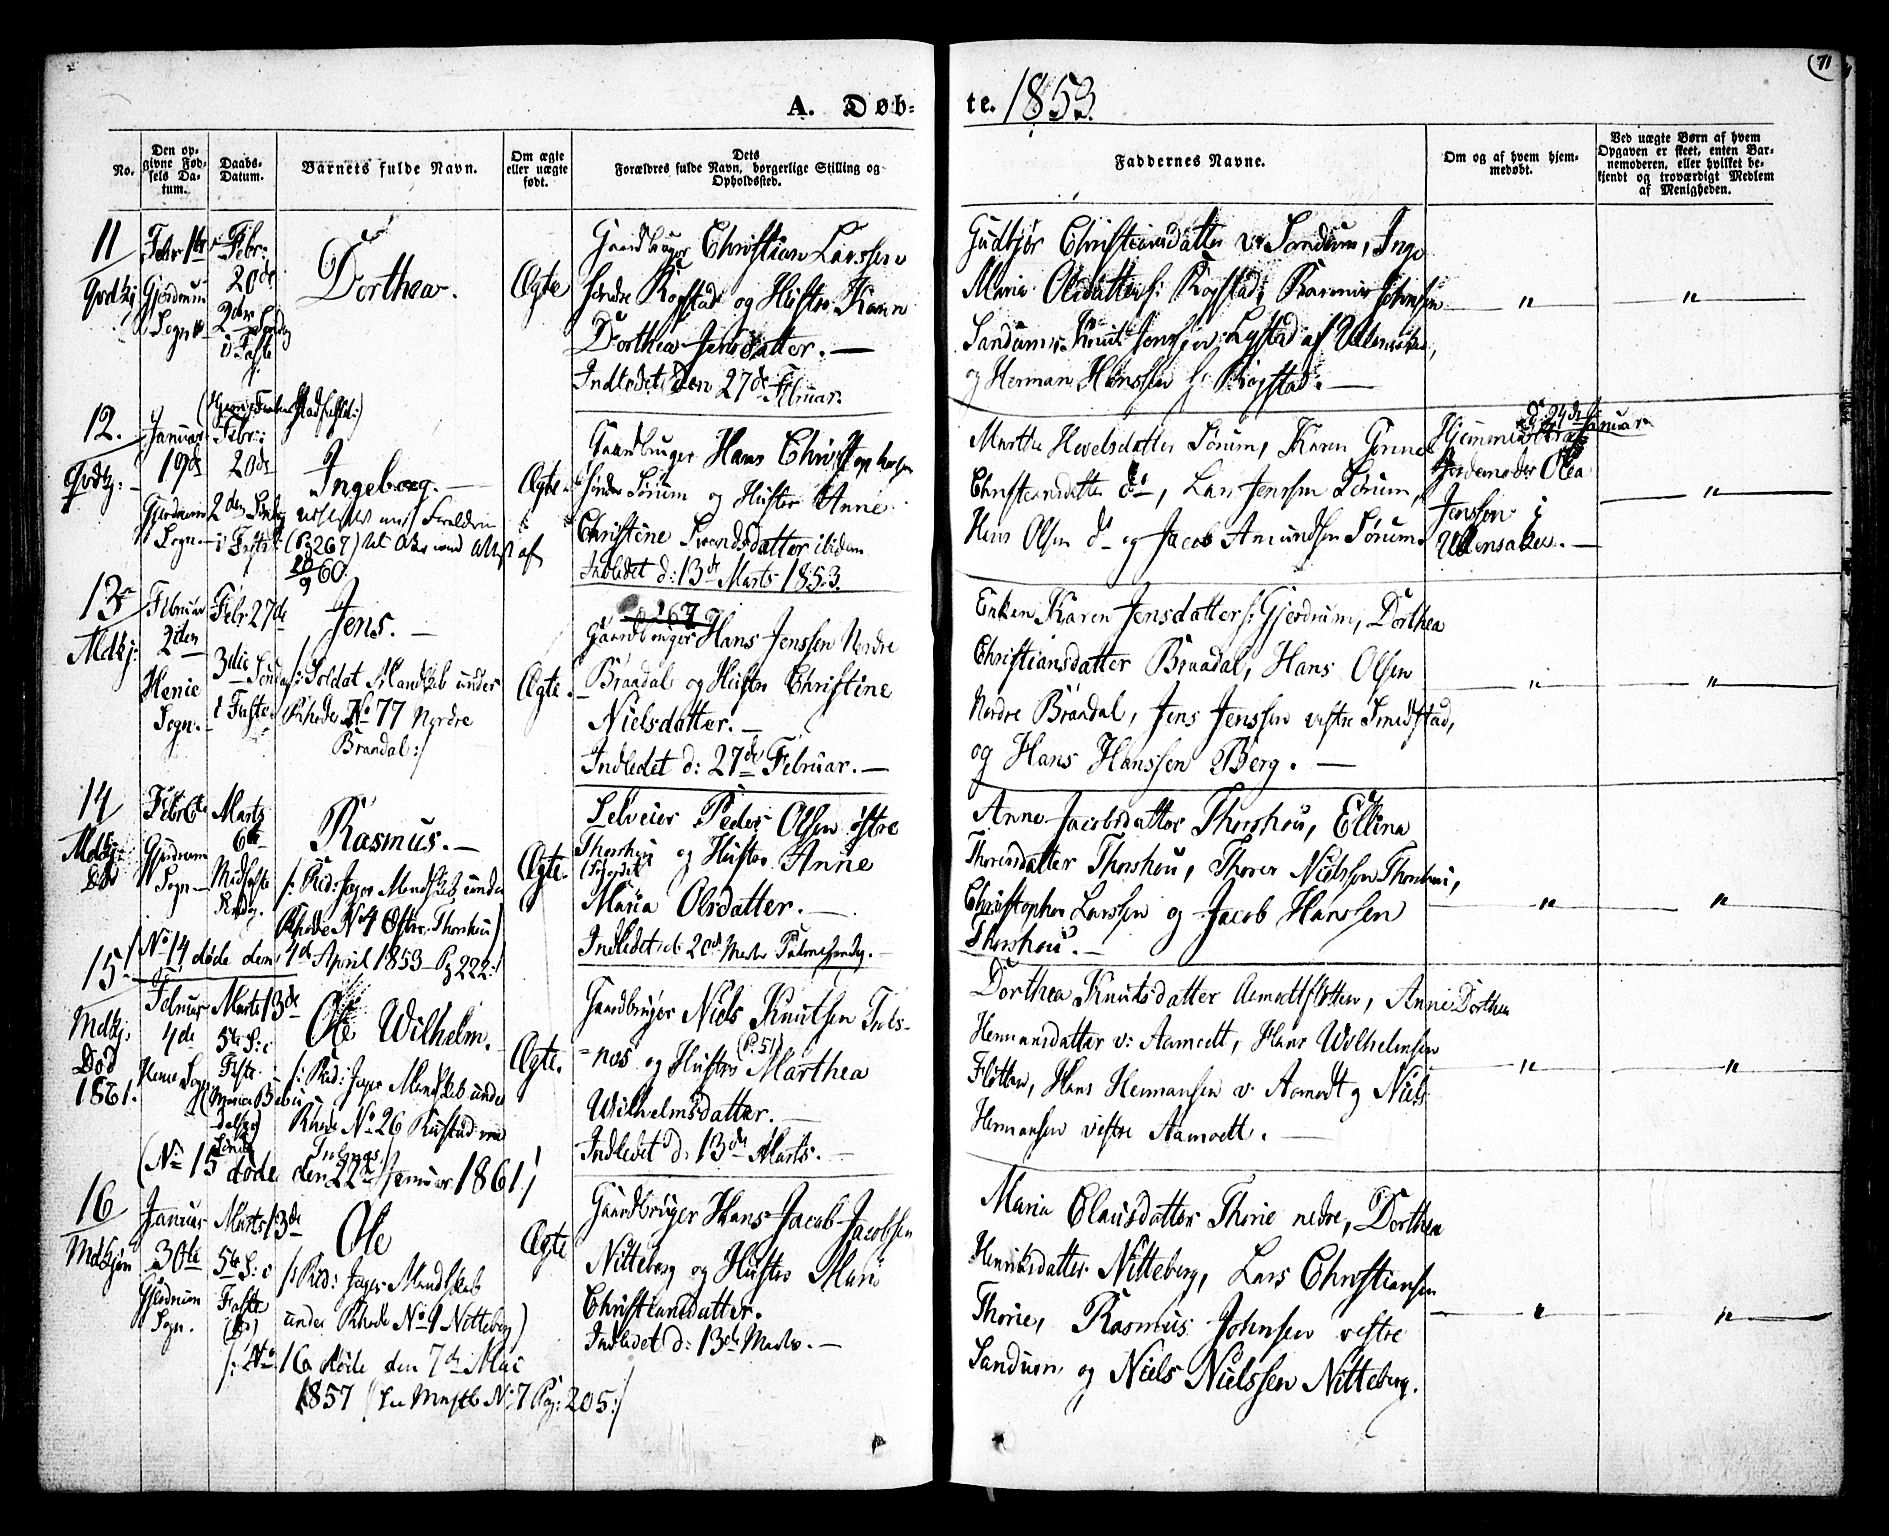 71
A. Døb-
te. 1853.
No.
Den opgivne Fødsels Datum.
Daabs-Datum.
Barnets fulde Navn.
Om ægte eller uægte født.
Dets Forældres fulde Navn, borgerlige Stilling og Opholdssted.
Faddernes Navne.
Om og af hvem hjemmedøbt.
Ved uægte Børn af hvem Opgaven er skeet, enten Barnemoderen, eller hvilket bekjendt og troværdigt Medlem af Menigheden.
11
Qvdkj
Febr 1ste
Gjerdrum
Sogn
Febr:
20de
2den Søndag
i Faste
Dorthea.
Ægte
Gaardbruger Christian Larssen
søndre Kogstad og Hustro Karen
Dorthea Jensdatter. —
Indledet Den 27de Februar.
Gudbjør Christiansdatter v: Sandum, Inge
Maria Olsdatter s: Kogstad,
og Herman Hanssen s: Kogstad. —
12.
Qvdkj. -
Januar
19de
Gjerdrum
Sogn. -
Febr:
20de
2den Søndag
i Faste
Ingeborg. —
(Pg 267)
60.
Ægte.
Gaardbruger Hans Christophersen
søndre Sørum og Hustro Anne
Christine Svendsdatter ibidem
Indledet d: 13de Marts 1853.
Marthe Hevelsdatter Sørum, Karen
Christiansdatter do, Lars Jenssen Sørum,
Hans Olsen do og Jacob Amundsen Sørum.
d: 24de Januar
Hjemmedøbt af
Gjordemoder Olea
Jenssen i
Ullensaker. —
13
Mdkj:
Februar
2den
Henie
Sogn. -
Febr 27de
3die Søndag
i Faste.
Jens. —
/: Soldat Mandskab under
Rhode No 77 Nordre
Braadal :/
Ægte.
267
Gaardbruger Hans Jenssen Nordre
Braadal og Hustro Christine
Nielsdatter. —
Indledet d: 27de Februar. —
Enken Karen Jensdatter s: Gjerdrum, Dorthea
Christiansdatter Braadal, Hans Olsen
Nordre Braadal, Jens Jenssen vestre Smedstad,
og Hans Hanssen Berg. —
14
Mdkj:
Død
Febr 6te
Gjerdrum
Sogn -
Marts
6te
Midfaste
Søndag.
Rasmus. —
/: Rid: Jæger Mandskab under
Rhode No 4 Østre Thorshou)
/No 14 døde den 4de April 1853 Pg 222 :/
Ægte.
Leleier Peder Olsen østre
Thorshou og Hustro Anne
Maria Olsdatter. —
Indledet d: 20de Marts Palmesøndag. -
Anne Jacobsdatter Thorshou, Ellina
Thorersdatter Thorshou, Thorer Nielssen Thorshou,
Christopher Larssen og Jacob Hanssen
Thorshou. —
15
Mdkj.
Død
1861.
Februar
4de
Henie Sogn
Marts 13de
5te S: i
Faste
(Mariæ Bebudelses
Søndag)
Ole Wilhelm.
/: Rid: Jæger Mandskab under
Rhode No 26 Kustad med
Tulsnes
(No 15 døde den 22de Januar 1861)
Ægte.
Gaardbruger Niels Knutsen Tuls-
=nes og Hustro (P. 51) Marthea
Wilhelmsdatter. —
Indledet d: 13de Marts. —
Dorthea Knutsdatter Aamodtflotten, Anne Dorthea
Hermansdatter v: Aamodt, Hans Wilhelmsen
Flotten, Hans Hermansen v: Aamodt og Niels
Hermansen vestre Aamodt. —
16
Mdkjøn
Januar
30te
Gjerdrum
Sogn.
Marts 13de
5te S: i
Faste
Ole
/: Rid: Jæger Mandskab
under Rhode No 1 Nitteberg)
/: No 16 døde den 7de Mai
1857 (se Mnstb No 7 Pag: 205 :/
Ægte
Gaardbruger Hans Jacob Jacobsen
Nitteberg og Hustro Mari
Christiansdatter.
Indledet d: 13de Marts. —
Maria Clausdatter Thorie nedre, Dorthea
Henriksdatter Nitteberg, Lars Christiansen
Thorie, Rasmus Johnsen vestre
Sandum og Niels Nielssen Nitteberg.